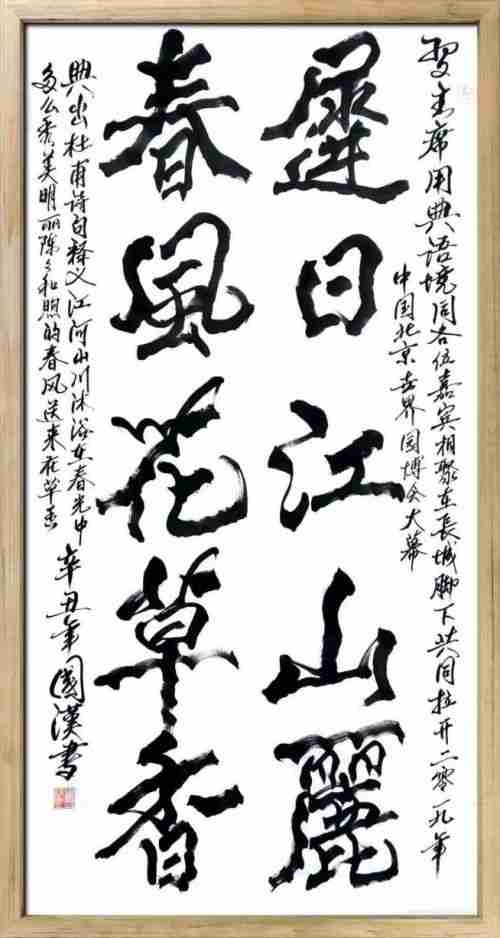 習主席用典语境同各位嘉宾相聚在長城脚下共同拉开二零一九年
中国北京世界园博会大幕
遲日江山麗
春風花草香
典出杜甫诗句释义江河山川沐浴在春光中
多么秀美明丽阵々和煦的春风送来花草香
辛丑年國漢書